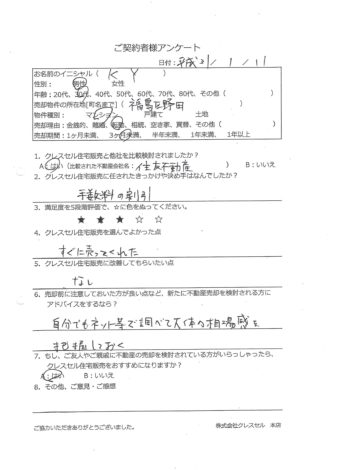 ご契約者様アンケート
日付：平成31/1/11
お名前のイニシャル（ K Y ）
性別： 男性 女性
年齢：20代、30代、40代、50代、60代、70代、80代、その他（ ）
売却物件の所在地[町名まで]（ 福島区野田 ）
物件種別： マンション 戸建て 土地
売却理由：金銭的、離婚、転勤、相続、空き家、買替、その他（ ）
売却期間：1ヶ月未満、 3ヶ月未満、 半年未満、 1年未満、 1年以上
1．クレスセル住宅販売と他社を比較検討されましたか？
A：はい（比較された不動産会社名： 住友不動産 ） B：いいえ
2．クレスセル住宅販売に任されたきっかけや決め手はなんでしたか？
手数料の割引
3．満足度を5段階評価で、☆に色をぬってください。
★ ★ ★ ☆ ☆
4．クレスセル住宅販売を選んでよかった点
すぐに売ってくれた
5．クレスセル住宅販売に改善してもらいたい点
なし
6．売却前に注意しておいた方が良い点など、新たに不動産売却を検討される方に
アドバイスをするなら？
自分でもネット等で調べて大体の相場感を
把握しておく
7．もし、ご友人やご親戚に不動産の売却を検討されている方がいらっしゃったら、
クレスセル住宅販売をおすすめになりますか？
A：はい B：いいえ
8．その他、ご意見・ご感想
ご協力いただきありがとうございました。 株式会社クレスセル 本店